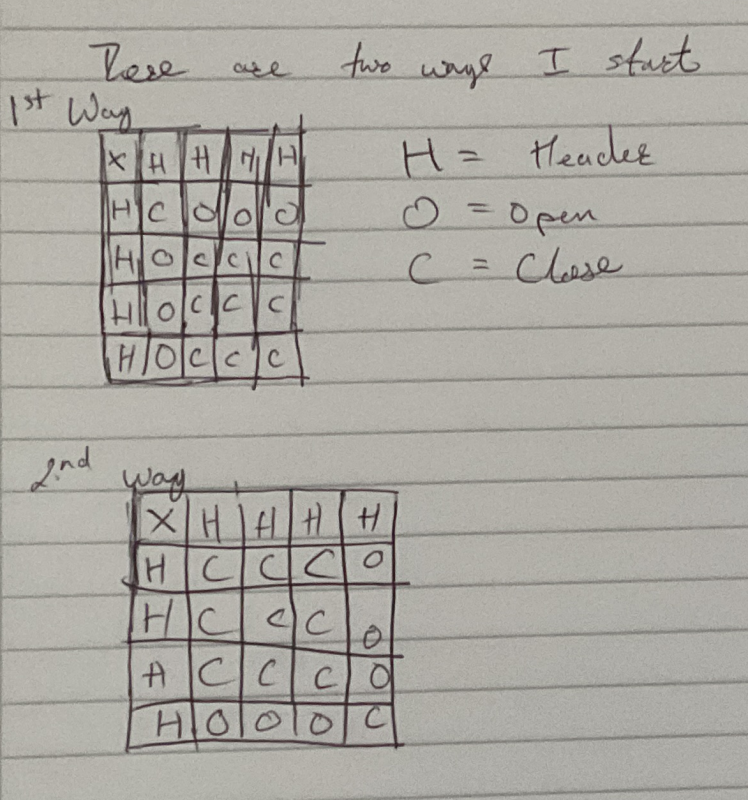 These are two ways I start
1st Way
X H H H H
H C O O O
H O C C C
H O C C C
H O C C C
H = Header
O = Open
C = Close
2nd way
X H H H H
H C C C O
H C C C O
H C C C O
H O O O C